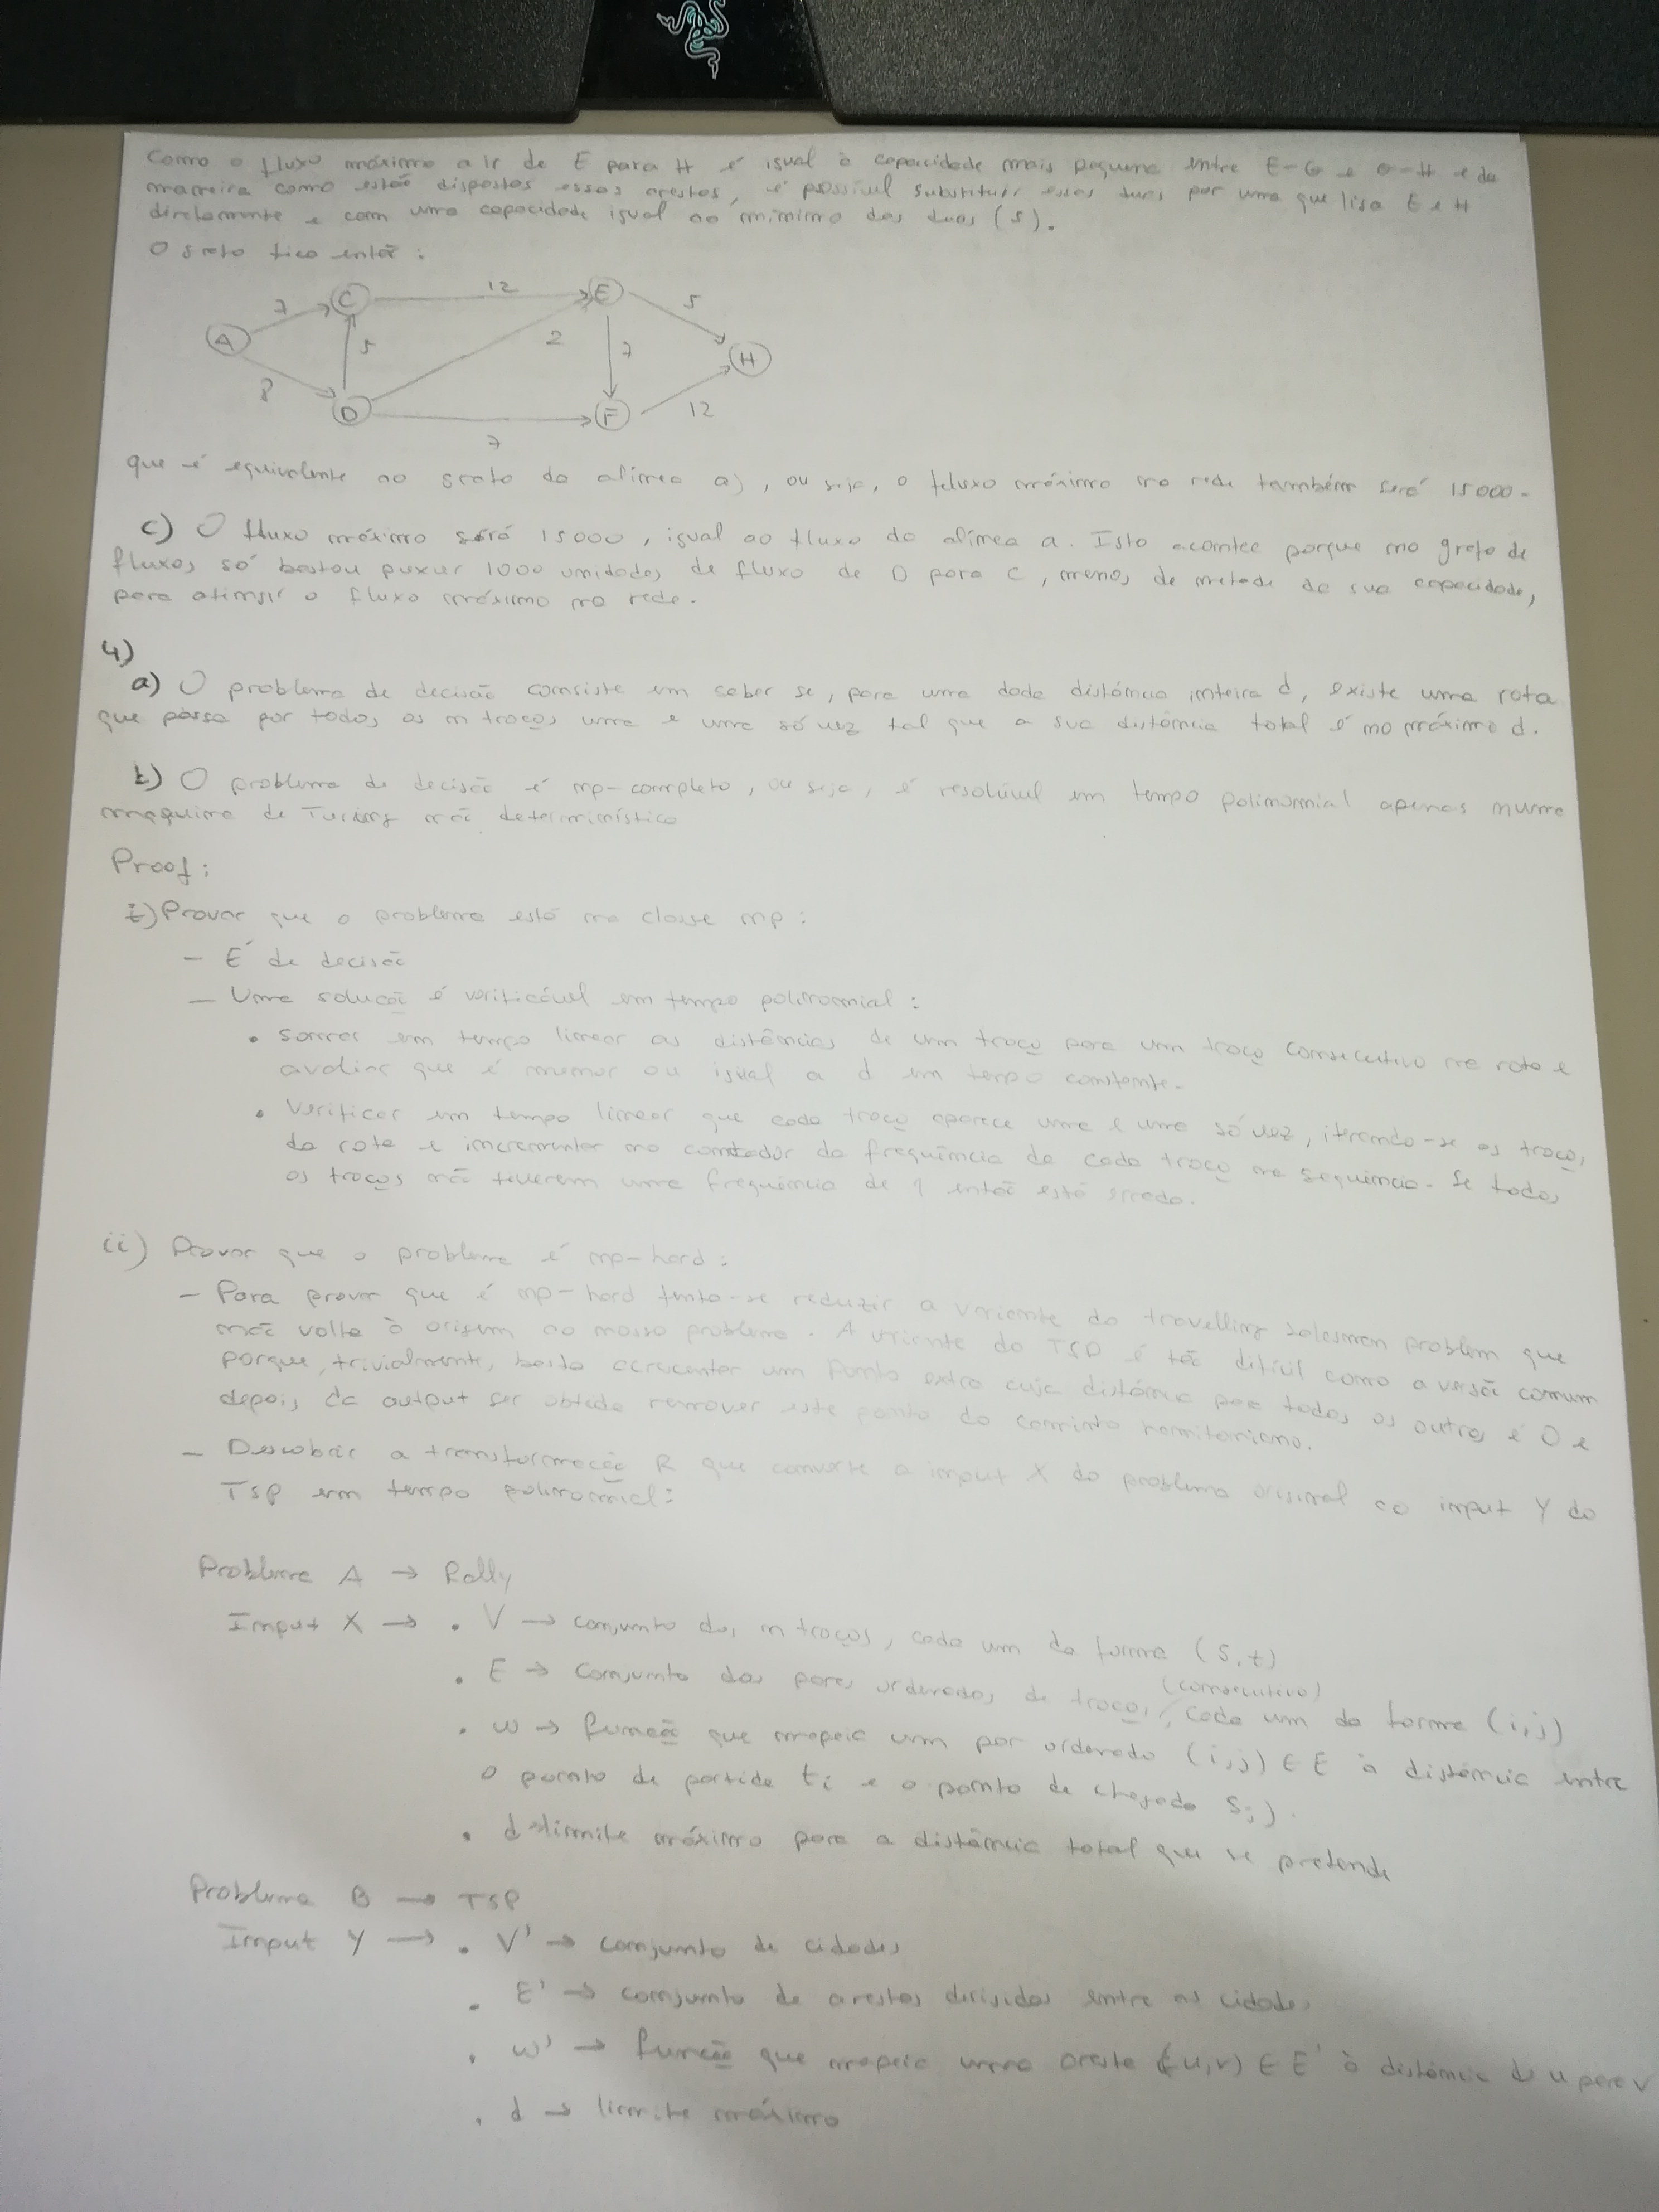 Como o fluxo máximo a ir de E para H é igual à capacidade mais pequena entre E-G e G-H e da
maneira como estão dispostos essas arestas, é possível substituir essas duas por uma que liga E e H
diretamente e com uma capacidade igual ao mínimo das duas (5).
O grafo fica então:
7 C 12 E 5
A 5 2 7 H
8 D 7 F 12
que é equivalente ao grafo da alínea a), ou seja, o fluxo máximo na rede também será 15000.
c) O fluxo máximo será 15000, igual ao fluxo da alínea a. Isto acontece porque no grafo de
fluxos, só bastou puxar 1000 unidades de fluxo de D para C, menos de metade da sua capacidade,
para atingir o fluxo máximo na rede.
4)
a) O problema de decisão consiste em saber se, para uma dada distância inteira d, existe uma rota
que passa por todos os n troços uma e uma só vez tal que a sua distância total é no máximo d.
b) O problema de decisão é np-completo, ou seja, é resolúvel em tempo polinomial apenas numa
maquina de Turing não determinística
Proof:
i) Provar que o problema está na classe np:
- É de decisão
- Uma solução é verificável em tempo polinomial:
• Somar em tempo linear as distâncias de um troço para um troço consecutivo na rota e
avaliar que é menor ou igual a d em tempo constante.
• Verificar em tempo linear que cada troço aparece uma e uma só vez, iterando-se os troços
da rota e incrementar no contador da frequência de cada troço na sequência. Se todos
os troços não tiverem uma frequência de 1 então está errado.
ii) Provar que o problema é np-hard:
- Para provar que é np-hard tenta-se reduzir a variante do travelling salesman problem que
não volta à origem ao nosso problema. A variante do TSP é tão difícil como a versão comum
porque, trivialmente, basta acrescentar um ponto extra cuja distância para todos os outros é 0 e
depois da output ser obtido remover este ponto do caminho hamiltoniano.
- Descobrir a transformação R que converte o input X do problema original ao input Y do
TSP em tempo polinomial:
Problema A → Rally
Input X → • V → conjunto dos n troços, cada um da forma (s,t)
• E → Conjunto dos pares ordenados de troços (consecutivo), cada um da forma (i,j)
• w → função que mapeia um par ordenado (i,j) ∈ E à distância entre
o ponto de partida ti e o ponto de chegada sj).
• d → limite máximo para a distância total que se pretende
Problema B → TSP
Input Y → • V' → conjunto de cidades
• E' → conjunto de arestas dirigidas entre as cidades
• w' → função que mapeia uma aresta (u,v) ∈ E' à distância de u para v
• d → limite máximo